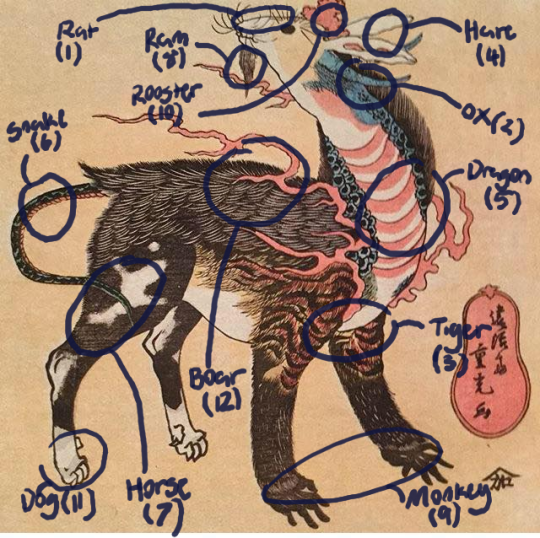 Rat
(1)
Ram
(8)
Hare
(4)
Rooster
(10)
Snake
(6)
OX(2)
Dragon
(5)
Tiger
(3)
Boar
(12)
Dog(11)
Horse
(7)
Monkey
(9)